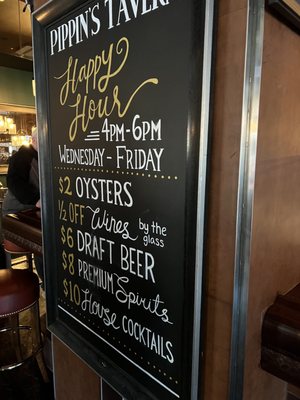 PIPPIN'S TAVERN
Happy
Hour
4PM-6PM
WEDNESDAY - FRIDAY
$2 OYSTERS
½ OFF Wines by the glass
$6 DRAFT BEER
$8 PREMIUM Spirits
$10 House COCKTAILS